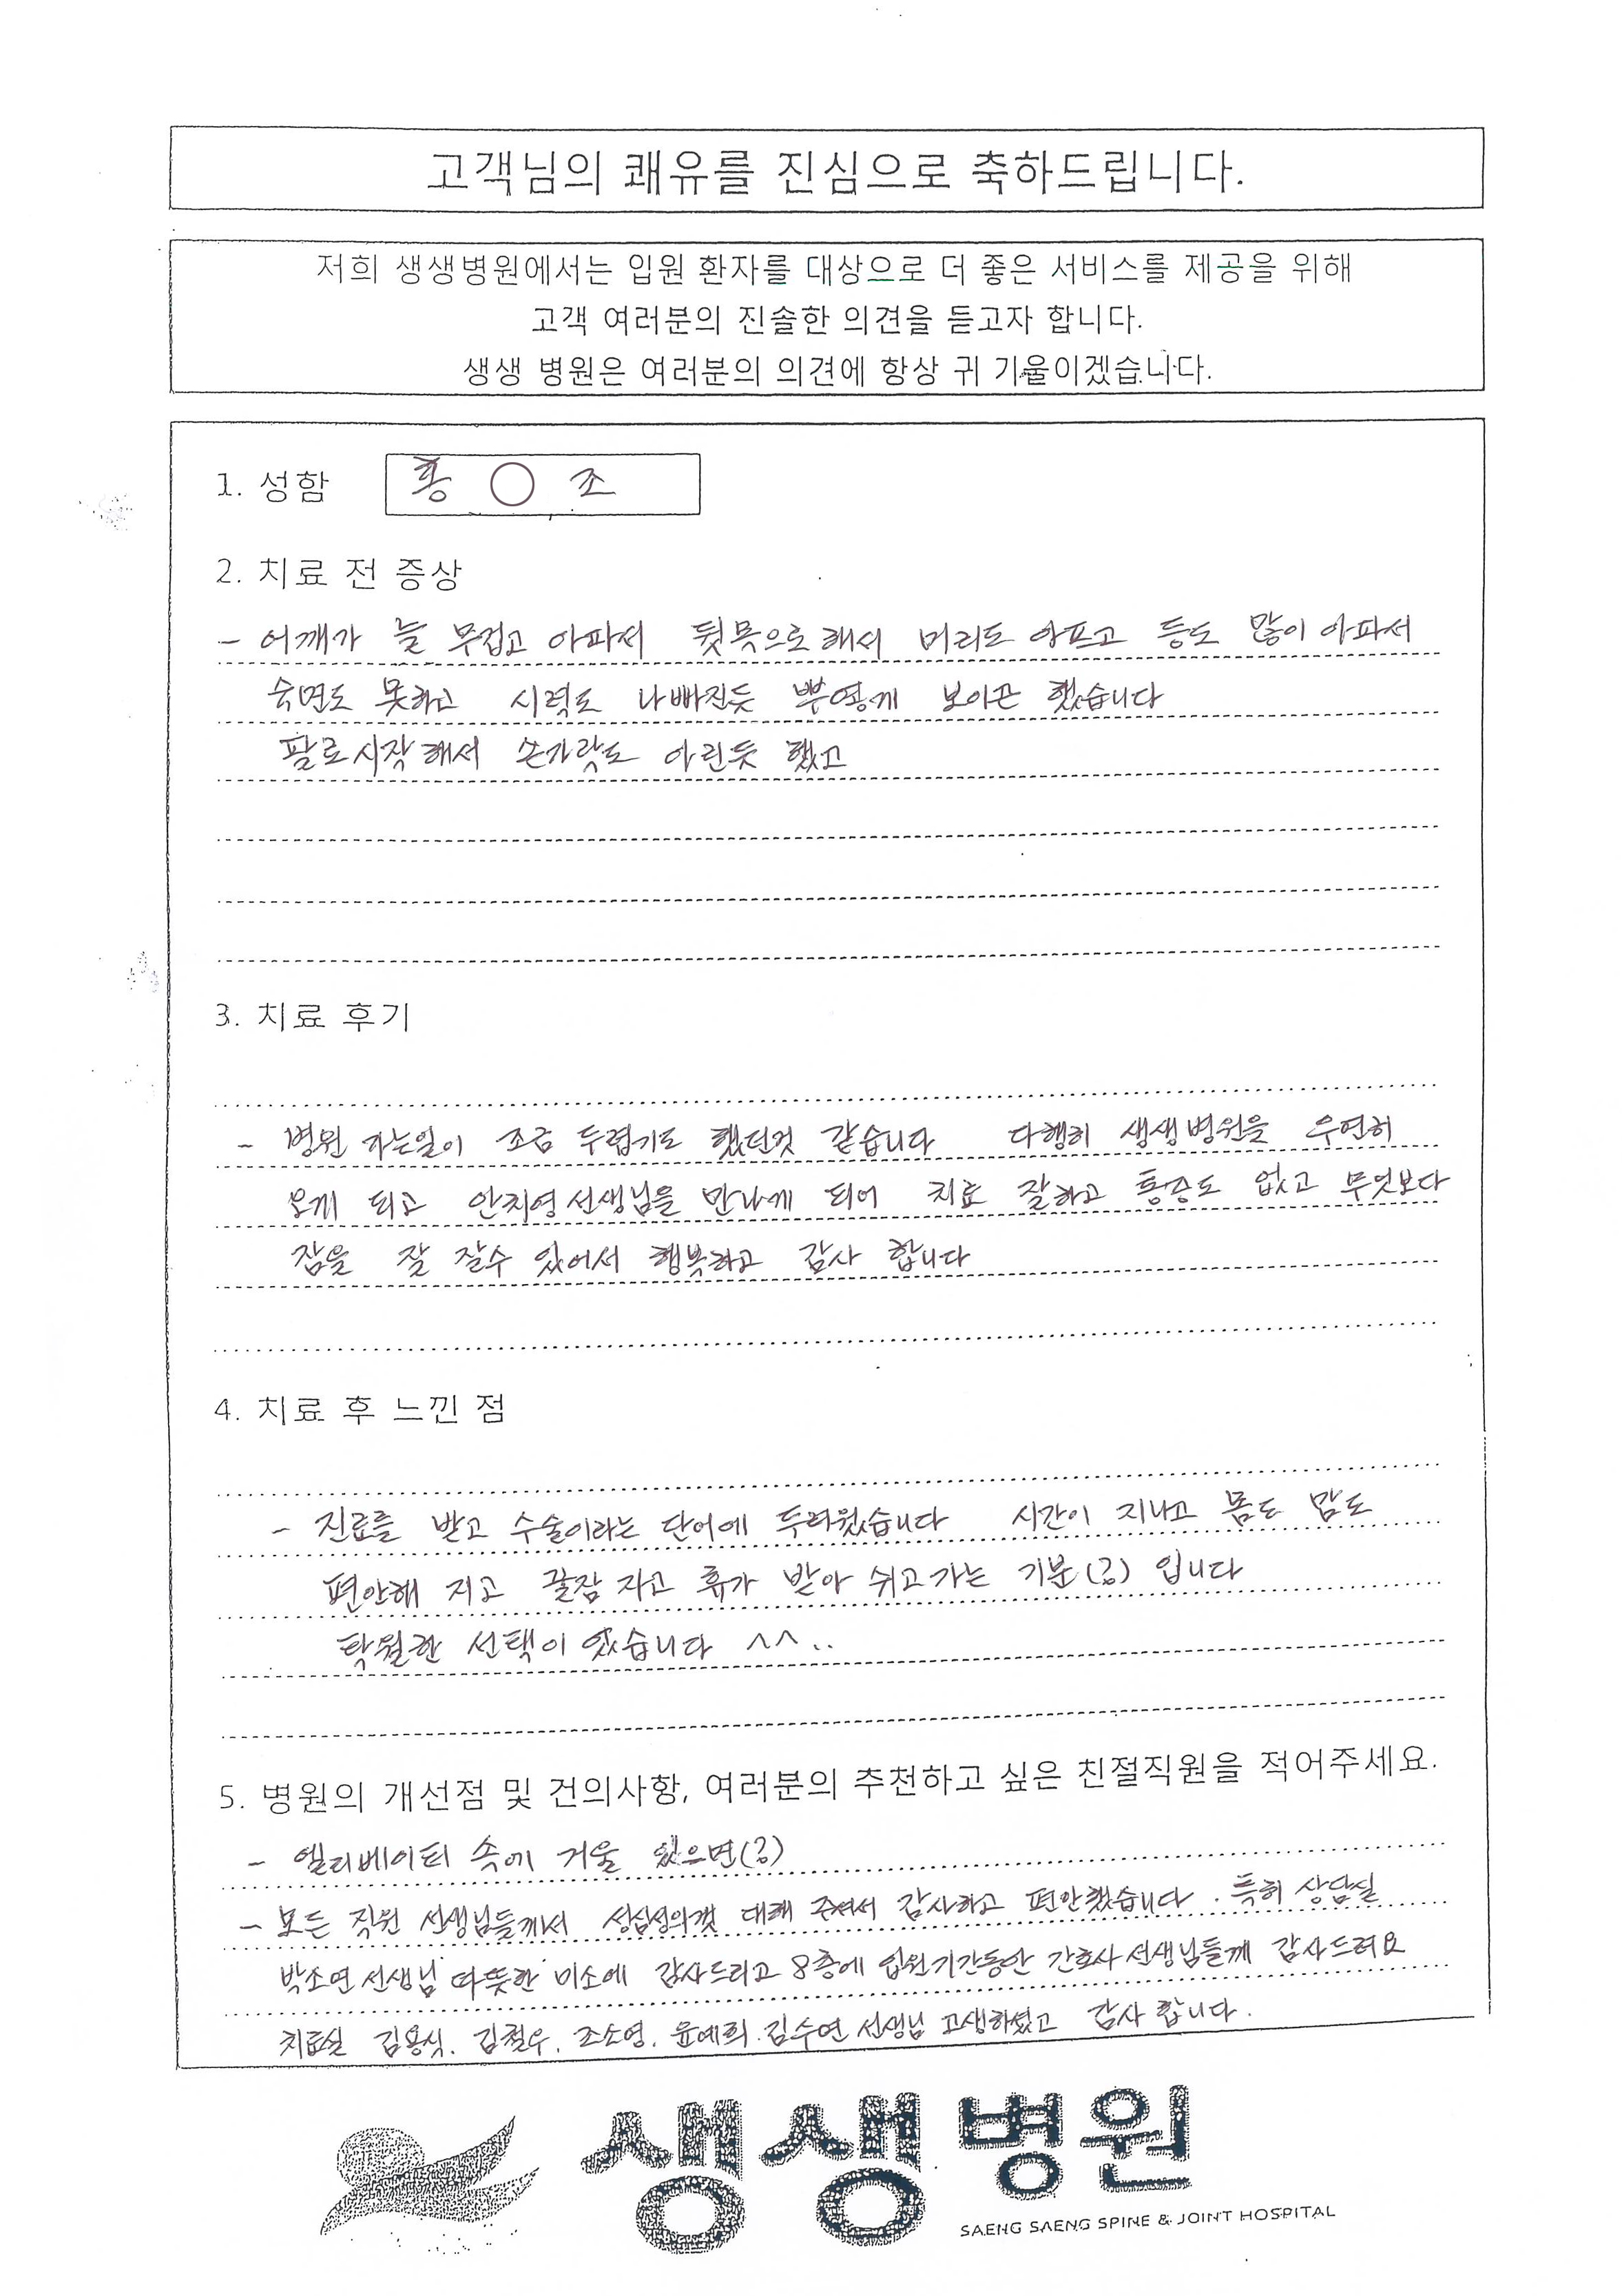 고객님의 쾌유를 진심으로 축하드립니다.
저희 생생병원에서는 입원 환자를 대상으로 더 좋은 서비스를 제공을 위해
고객 여러분의 진솔한 의견을 듣고자 합니다.
생생 병원은 여러분의 의견에 항상 귀 기울이겠습니다.
1. 성함 홍 ○ 조
2. 치료 전 증상
- 어깨가 늘 무겁고 아파서 뒷목으로해서 머리도 아프고 등도 많이 아파서
숙면도 못하고 시력도 나빠진듯 뿌옇게 보이곤 했습니다
팔로시작해서 손가락도 아린듯 했고
3. 치료 후기
- 병원 가는일이 조금 두렵기도 했던것 같습니다 다행히 생생병원을 우연히
오게 되고 안치영선생님을 만나게 되어 치료 잘하고 통증도 없고 무엇보다
잠을 잘 잘수 있어서 행복하고 감사 합니다
4. 치료 후 느낀 점
- 진료를 받고 수술이라는 단어에 두려웠습니다 시간이 지나고 몸도 맘도
편안해 지고 꿀잠 자고 휴가 받아 쉬고가는 기분(ㅎ) 입니다
탁월한 선택이 였습니다 ^^..
5. 병원의 개선점 및 건의사항, 여러분의 추천하고 싶은 친절직원을 적어주세요.
- 엘리베이터 속에 거울 있으면(ㅎ)
- 모든 직원 선생님들께서 성심성의껏 대해 주셔서 감사하고 편안했습니다. 특히 상담실
박소연선생님 따뜻한 미소에 감사드리고 8층에 입원기간동안 간호사선생님들께 감사드려요
치료실 김용식. 김철우. 조소영. 윤예희. 김수연 선생님 고생하셨고 감사 합니다.
생생병원
SAENG SAENG SPINE & JOINT HOSPITAL